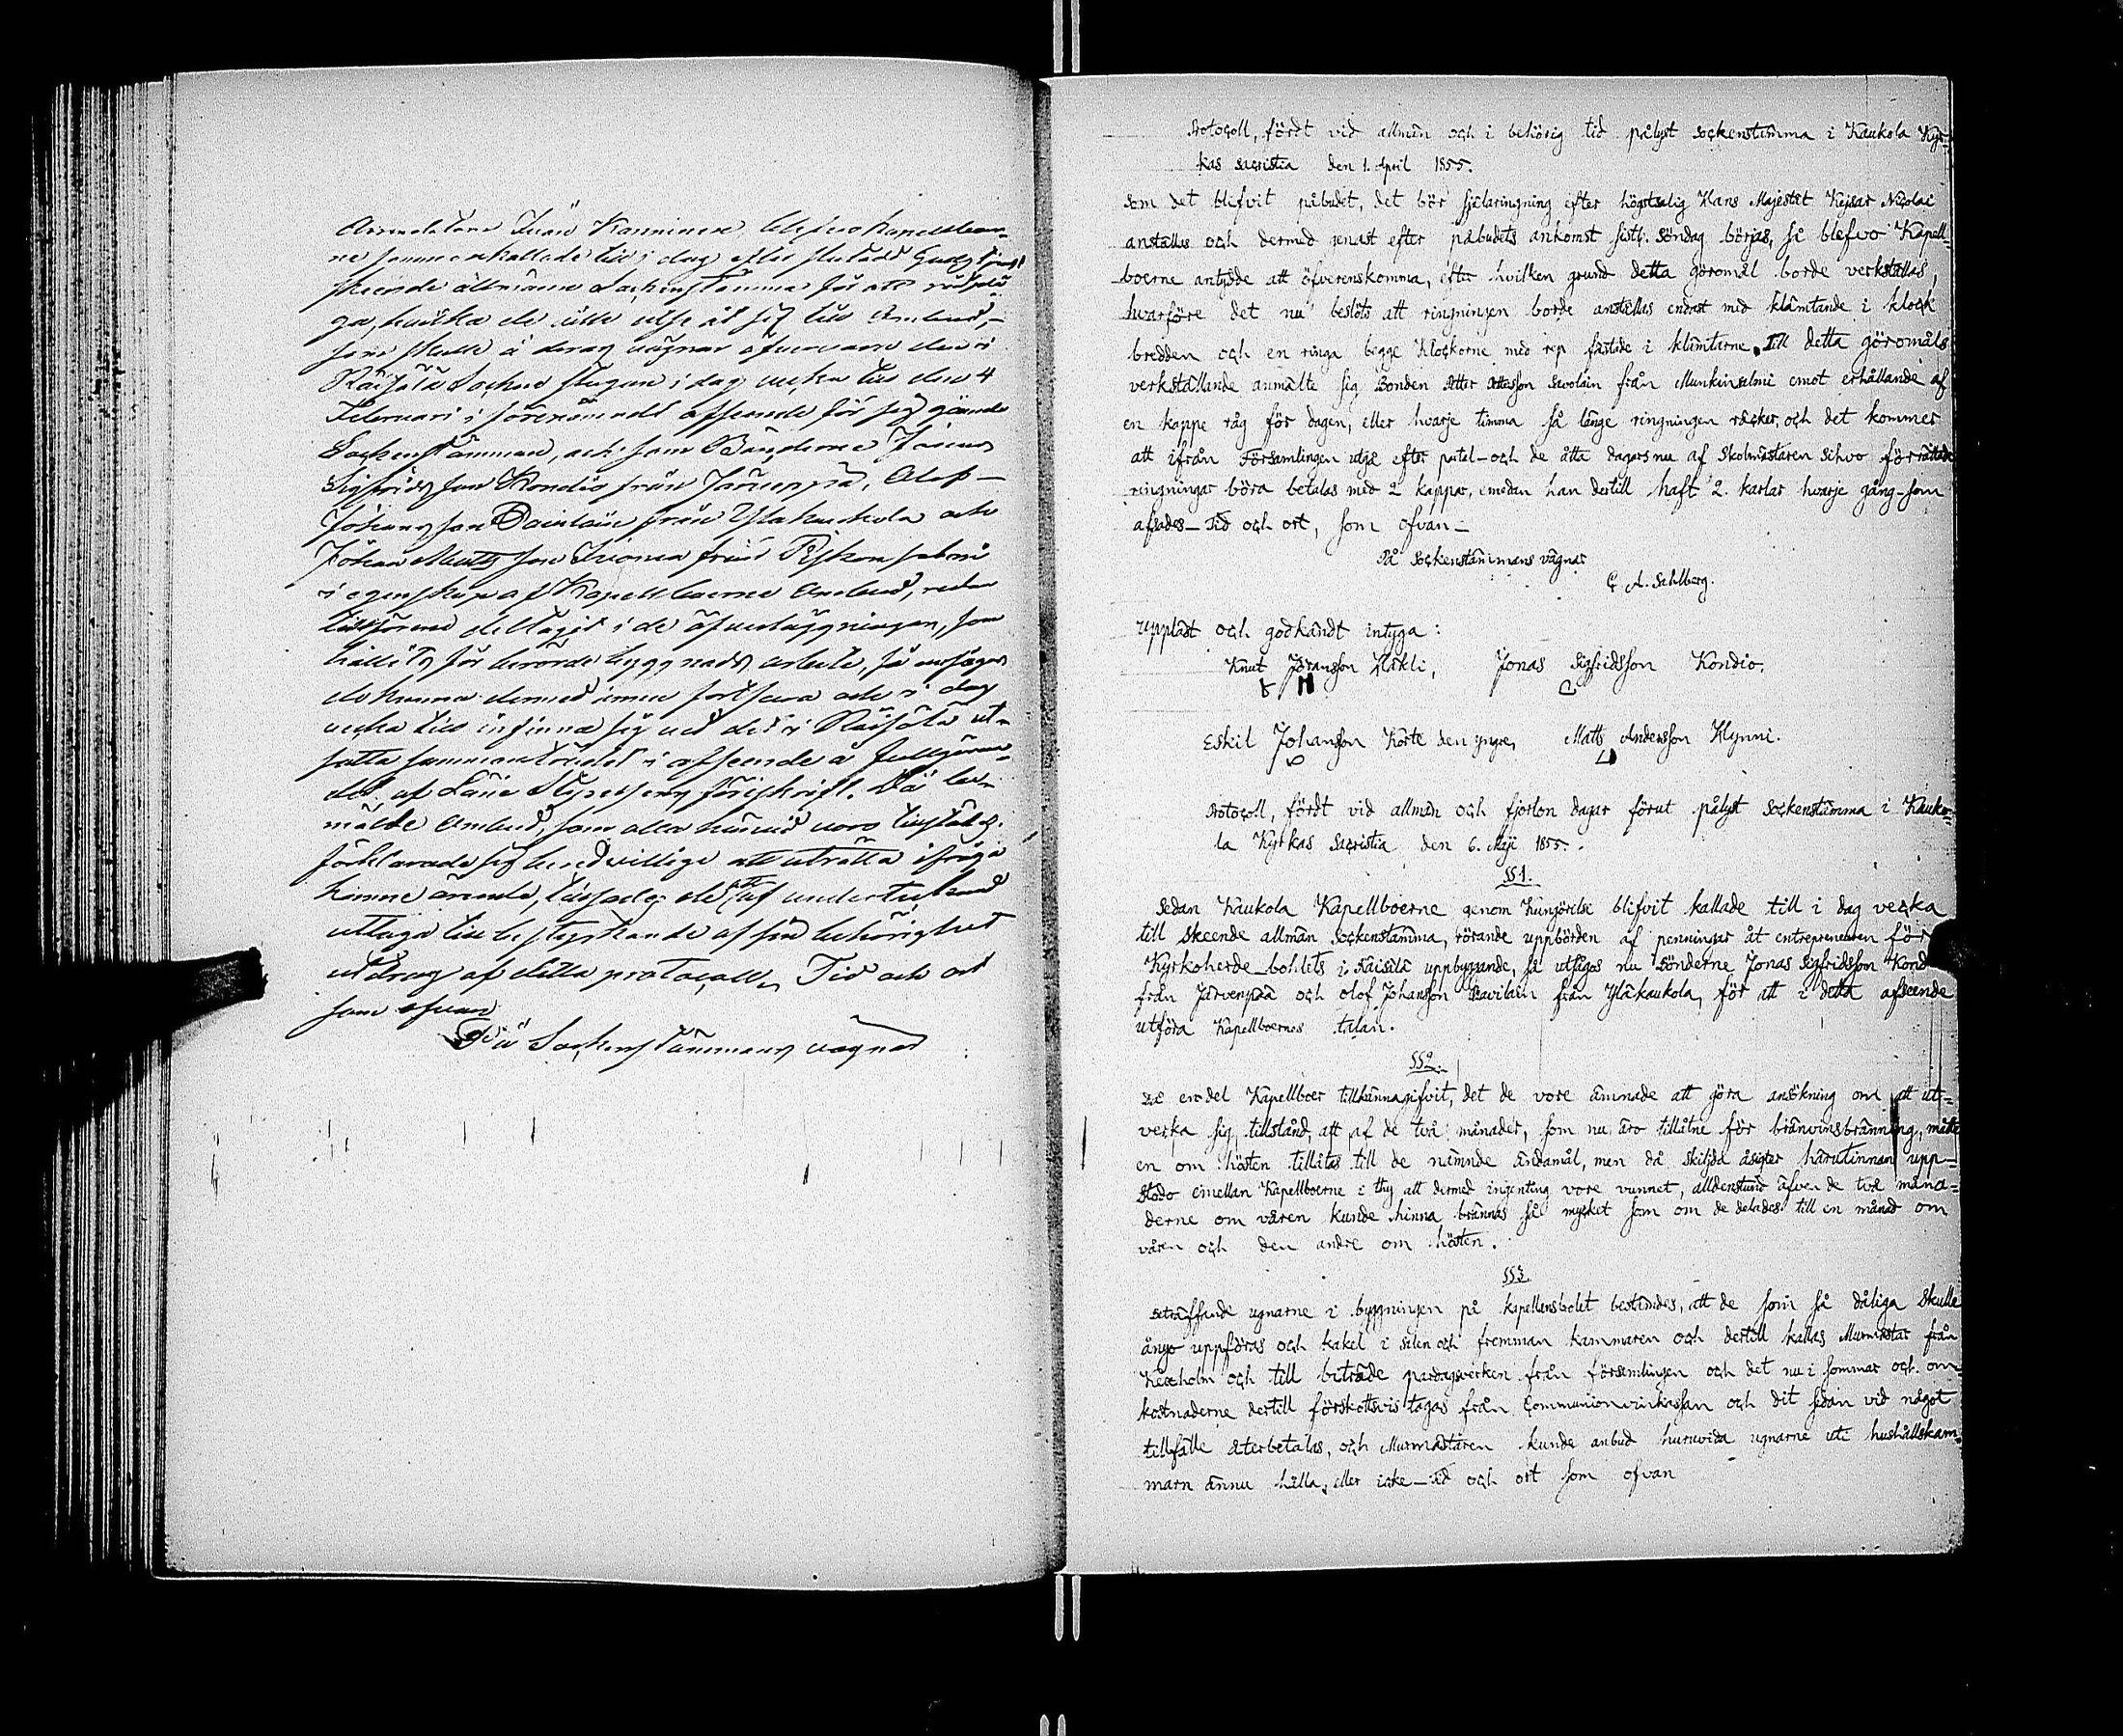 Arrendatorn Iwan Karninen blefvo Kapellboer-
ne sammankallade till i dag efter slutad Gudstjenst
skeende allmänna Sockenstämma för att rådplä
ga, hvilka de ville utse åt sig till Ombud,
som skulle å deras vägnar öfvervara den i
Räisälä Socken stugan i dag vecka till den 4
Februari i förenämndt afseende för sig gående
Sockenstämman, och som Bönderne Jonas
Sigfridsson Kondio från Järvenpää, Olof
Johansson Pavilain från Yläkaukola och
Johan Mattsson från Piiskonsalmi
i egenskap af Kapellboerne Ombud, redan
tillförene deltagit i de öfverläggningar, som
hållits för berörde byggnads arbete, så ansågos
de kunna dermed ännu fortfara och i dag
vecka till infinna sig vid det i Räisälä ut-
satta sammanträdet i afseende å fullgöran-
det af Läne Styrelsens föreskrift. Då be-
mälte Ombud, som alla härvid voro tillstädes
förklarade sig beredvillige att uträtta ifråga
komne ärende, tillsades de att af undertecknad
uttaga till bestyrkande af sin behörighet
utdrag af detta protocoll. Tid och ort
som ofvan
På Sockenstämmans vägnar
Protocoll, fördt vid allmän och i behörig tid pålyst sockenstämma i Kaukola Kyr-
kas sacristia den 1. April 1855.
Som det blifvit påbudet, det bör själaringning efter högstsalig Hans Majestät Kejsar Nicolai
anställas och dermed genast efter påbudets ankomst sistl. Söndag börjas, så blefvo Kapell-
boerne antydde att öfverenskomma, efter hvilken grund detta göromål borde verkställas,
hvarföre det nu beslöts att ringningen borde anställas endast med klämtande i klock
bredden och en ringa begge klockorne med rep fästade i klämtarne. Till detta göromåls
verkställande anmälte sig Bonden Petter Pettersson Savolain från Munkinsalmi emot erhållande af
en kappe råg för dagen, eller hvarje timma så länge ringningen räcker, och det kommer
att ifrån Församlingen utgå efter patal-och de åtta dagars nu af Skolmästaren Sihvo förrättade
ringningar böra betalas med 2 kappar, emedan han dertill haft 2. karlar hvarje gång-som
afsades- Tid och ort, som ofvan-
På Sockenstämmans vägnar
C. A. Sahlberg.
Uppläst och godkändt intyga:
Knut Jöransson Häkli, Jonas Sigfridsson Kondio.
Eskil Johansson Korte den yngre, Matts Andersson Hynni.
Protocoll, fördt vid allmän och fjorton dagar förut pålyst Sockenstämma i Kauko-
la Kyrkas Sacristia den 6. Maji 1855.
§§1.
Sedan Kaukola Kapellboerne genom Kungörelse blifvit kallade till i dag vecka
till skeende allmän Sockenstämma, rörande uppbörden af penningar åt entrepreneuren för
Kyrkoherde-bohlets i Räisälä uppbyggande, så utsågos nu Bönderne Jonas Sigfridsson Kond
från Järvenpää och Olof Johansson Pavilain från Yläkaukola, för att i detta afseende
utföra Kapellboernes talan.
§§2.
En del Kapellboer tillkännagifvit, det de vore ämnade att göra ansökning om att ut-
verka sig tillstånd, att af de två månader, som nu äro tillåtne för bränvinsbränning, måtte
en om hösten tillåtas till de nämnde ändamål, men då skiljda åsigter härutinnan upp-
stodo emellan Kapellboerne i thy att dermed ingenting vore vunnet, alldenstund äfven de två måna-
derne om våren kunde hinna brännas så mycket som om de delades till en månad om
våren och den andre om hösten.
§§3.
Beträffande ugnarne i byggningen på kapellansbolet bestämdes, att de som så dåliga skulle
ånyo uppföras och kakel i salen och fremman kammaren och dertill kallas Murmästar från
Kexholm och till biträde pardagsverken från församlingen och det nu i sommar och om-
kostnaderne dertill förskottsvis tagas från Communionvinkassan och dit sedan vid något
tillfälle återbetalas, och Murmästaren kunde anbud huruvida ugnarne uti hushållskam-
marn ännu hålla, eller icke- Tid och ort som ofvan